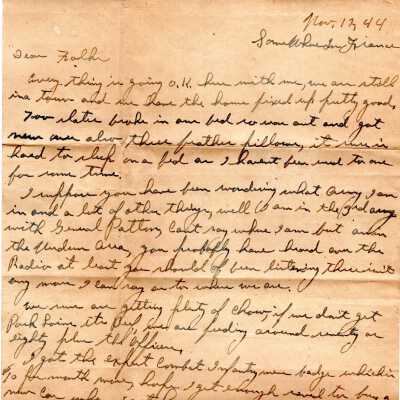 Nov. 13, 44
Somewhere In France
Dear Folks
Every thing is going O.K. here with me, we are still
in a town and we have the home fixed up pretty good,
Two slats broke in our bed so we went out and got
new ones also three feather pillows, it sure is
hard to sleep on a bed as I havent been used to one
for some time.
I suppose you have been wondering what army I am
in and a lot of other things, well I am in the 3rd army
with General Patton, Cant say where I am but around
the area, you probably have heard over the
Radio at least you should of been listening there isnt
any more I can say as to where we are.
We sure are getting plenty of chow, if we dont get
Pork Loins its Beef, we are feeding around seventy or
eighty plus the officers.
I got the expert Combat Infantry badge which is
$5 per month more, hope I get enough saved to buy a
new car when